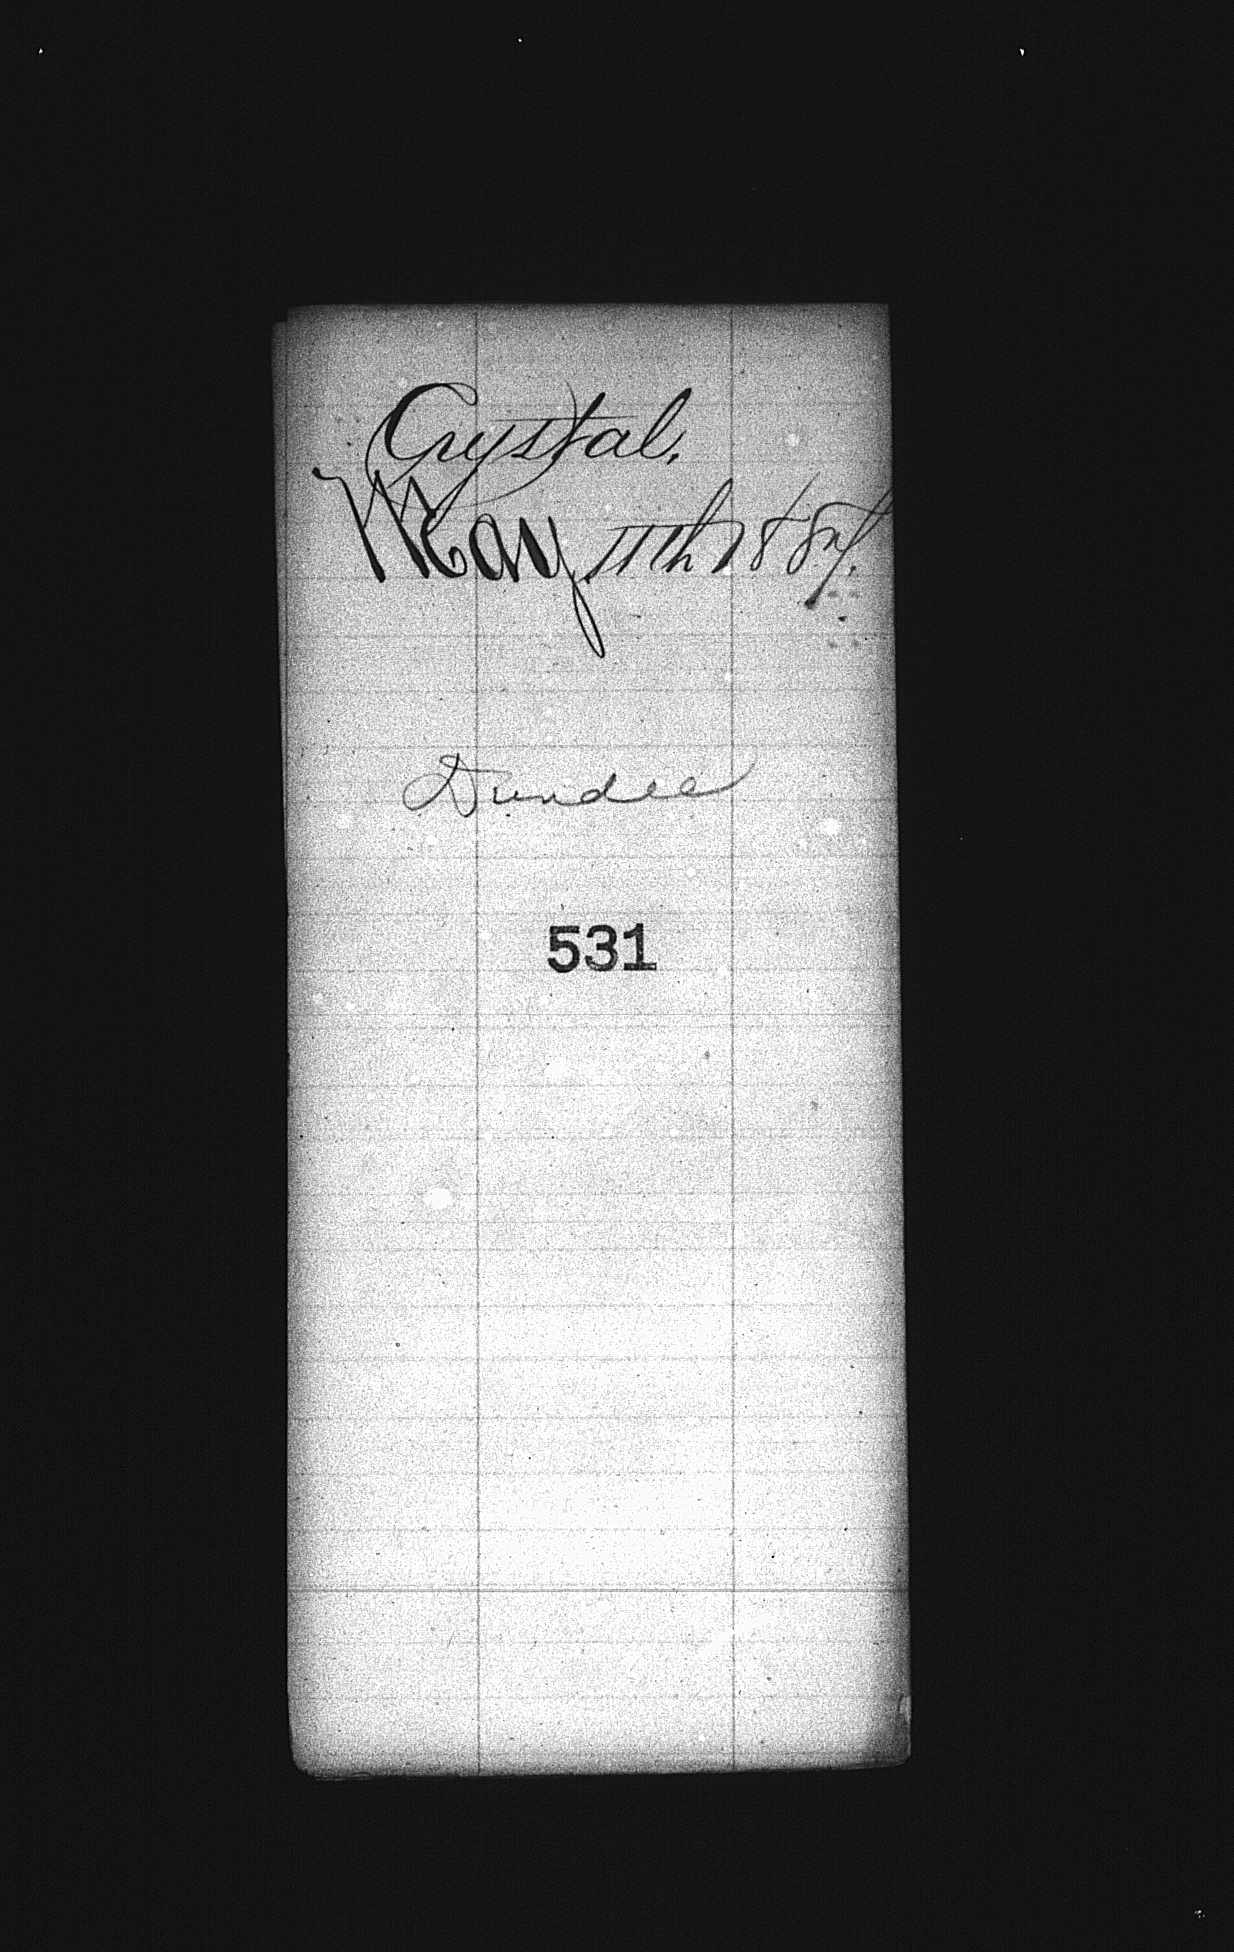 Crystal.
May 11th 1887.
Dundee
531